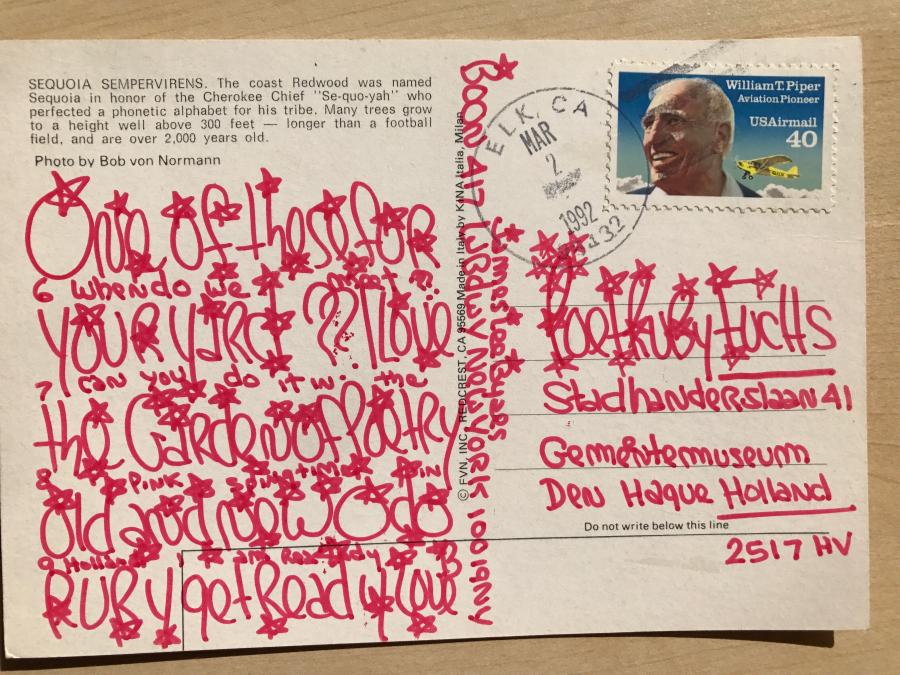 SEQUOIA SEMPERVIRENS. The coast Redwood was named
Sequoia in honor of the Cherokee Chief "Se-quo-yah" who
perfected a phonetic alphabet for his tribe. Many trees grow
to a height well above 300 feet — longer than a football
field, and are over 2,000 years old.
Photo by Bob von Normann
One of these for
6 when do we meet ?
YOUR YARd ?? I Love
7 can you do it w. the
the Garden of Poetry
8 Pink springtime in
old and new Odo
9 Holland and Ready
RUBY get Ready w Love
© FVN, INC. REDCREST, CA 95569 Made in Italy by KINA Italia, Milan
Boon 417
James Lee Byars
YORK 10019 NY
ELK, CA
MAR
2
1992
William T. Piper
Aviation Pioneer
USAirmail
40
Poet Ruby FucHS
Stadhanderslaan 41
Gemeentemuseum
Den Hague Holland
Do not write below this line
2517 HV